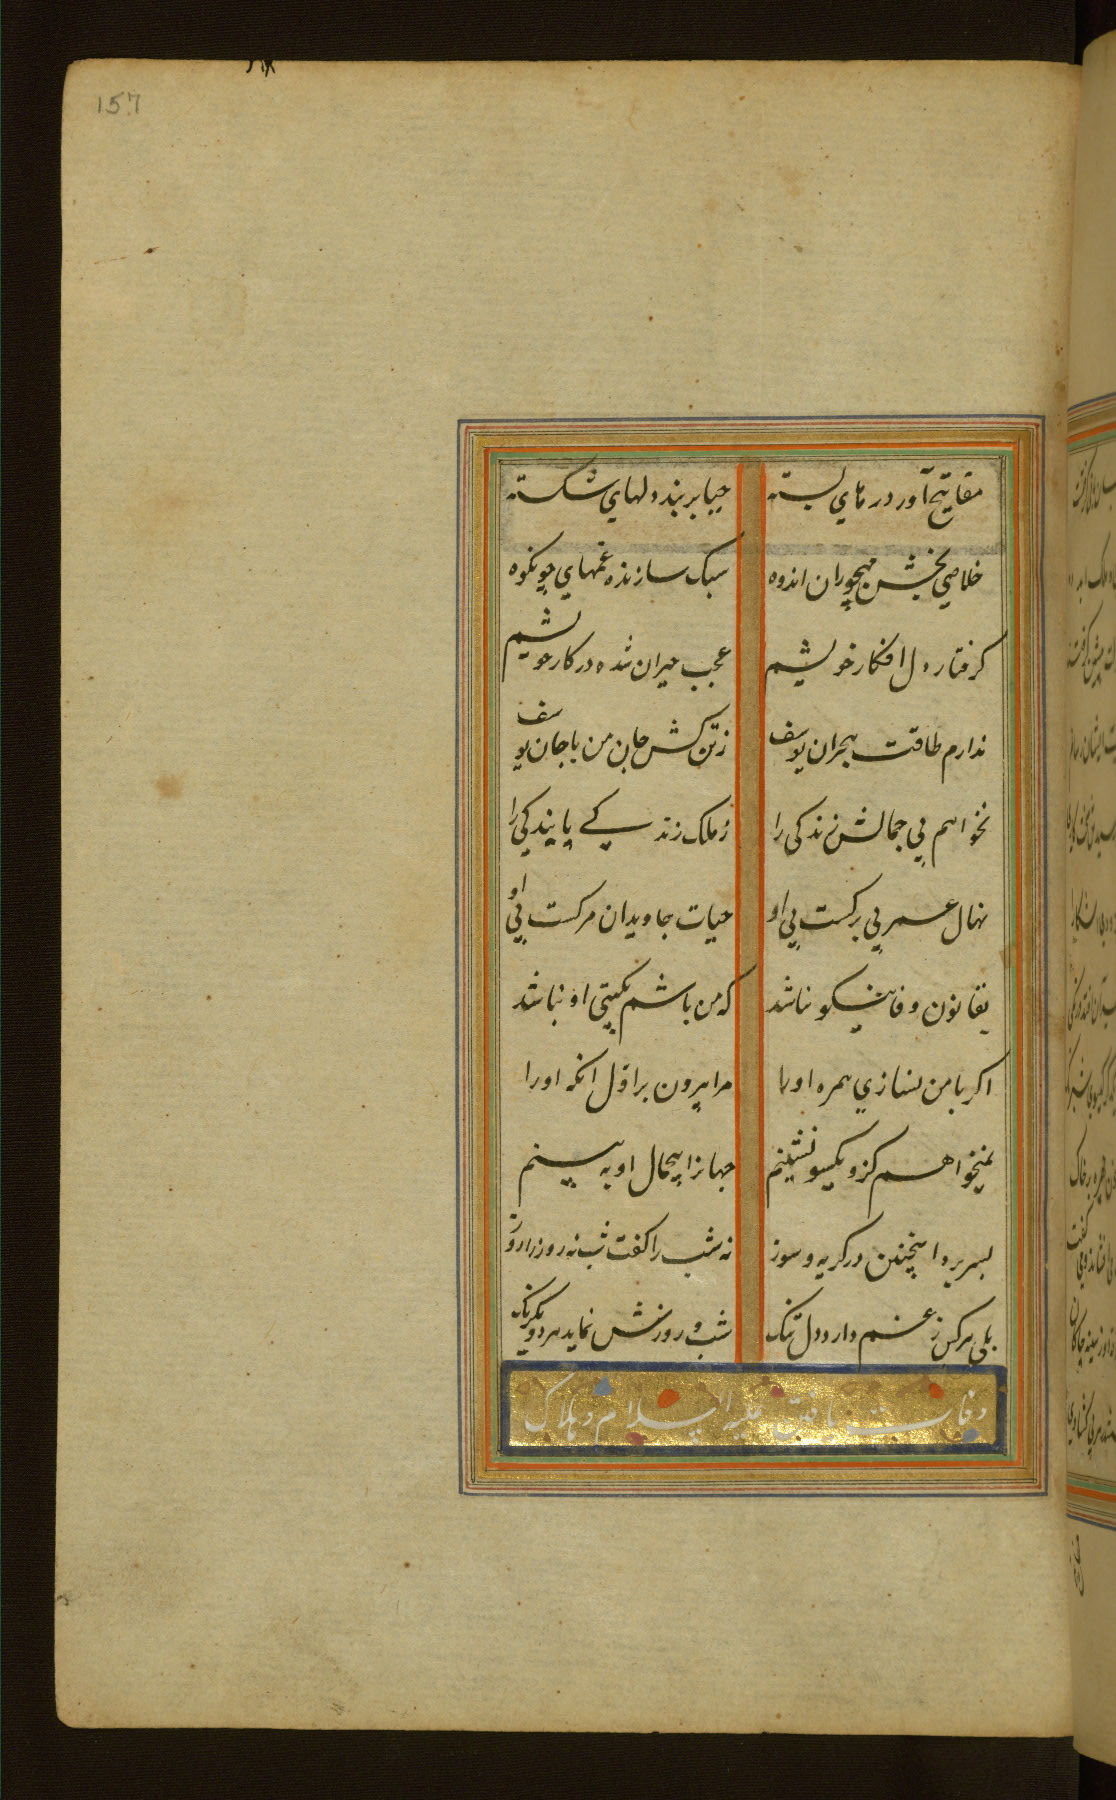 157
مفاتیح آور درهای بسته جبایر بند دلهای شکسته
خلاصی بخش مهجوران اندوه سبک سازنده غمهای چون کوه
گرفتار دل افکار خویشم عجب حیران شده در کار خویشم
ندارم طاقت هجران یوسف ز تن کش جان من با جان یوسف
نخواهم بی جمالش زندگی را ز ملک زندگی پایندگی را
نهال عمر بی برگست بی او حیات جاویدان مرگست بی او
بقانون وفا نیکو نباشد که من باشم بگیتی او نباشد
اگر با من نسازی همره او را مرا بیرون بر اول آنگه او را
نمیخواهم کزو یکسو نشینم جهانرا بیجمال او به بینم
بسر برد اینچنین در گریه و سوز نه شب را گفت شب نه روز را روز
بلی هر کس ز غم دارد دل تنگ شب و روزش نماید هر دو یکرنگ
وفات یافتن علیه السلام و هلاک